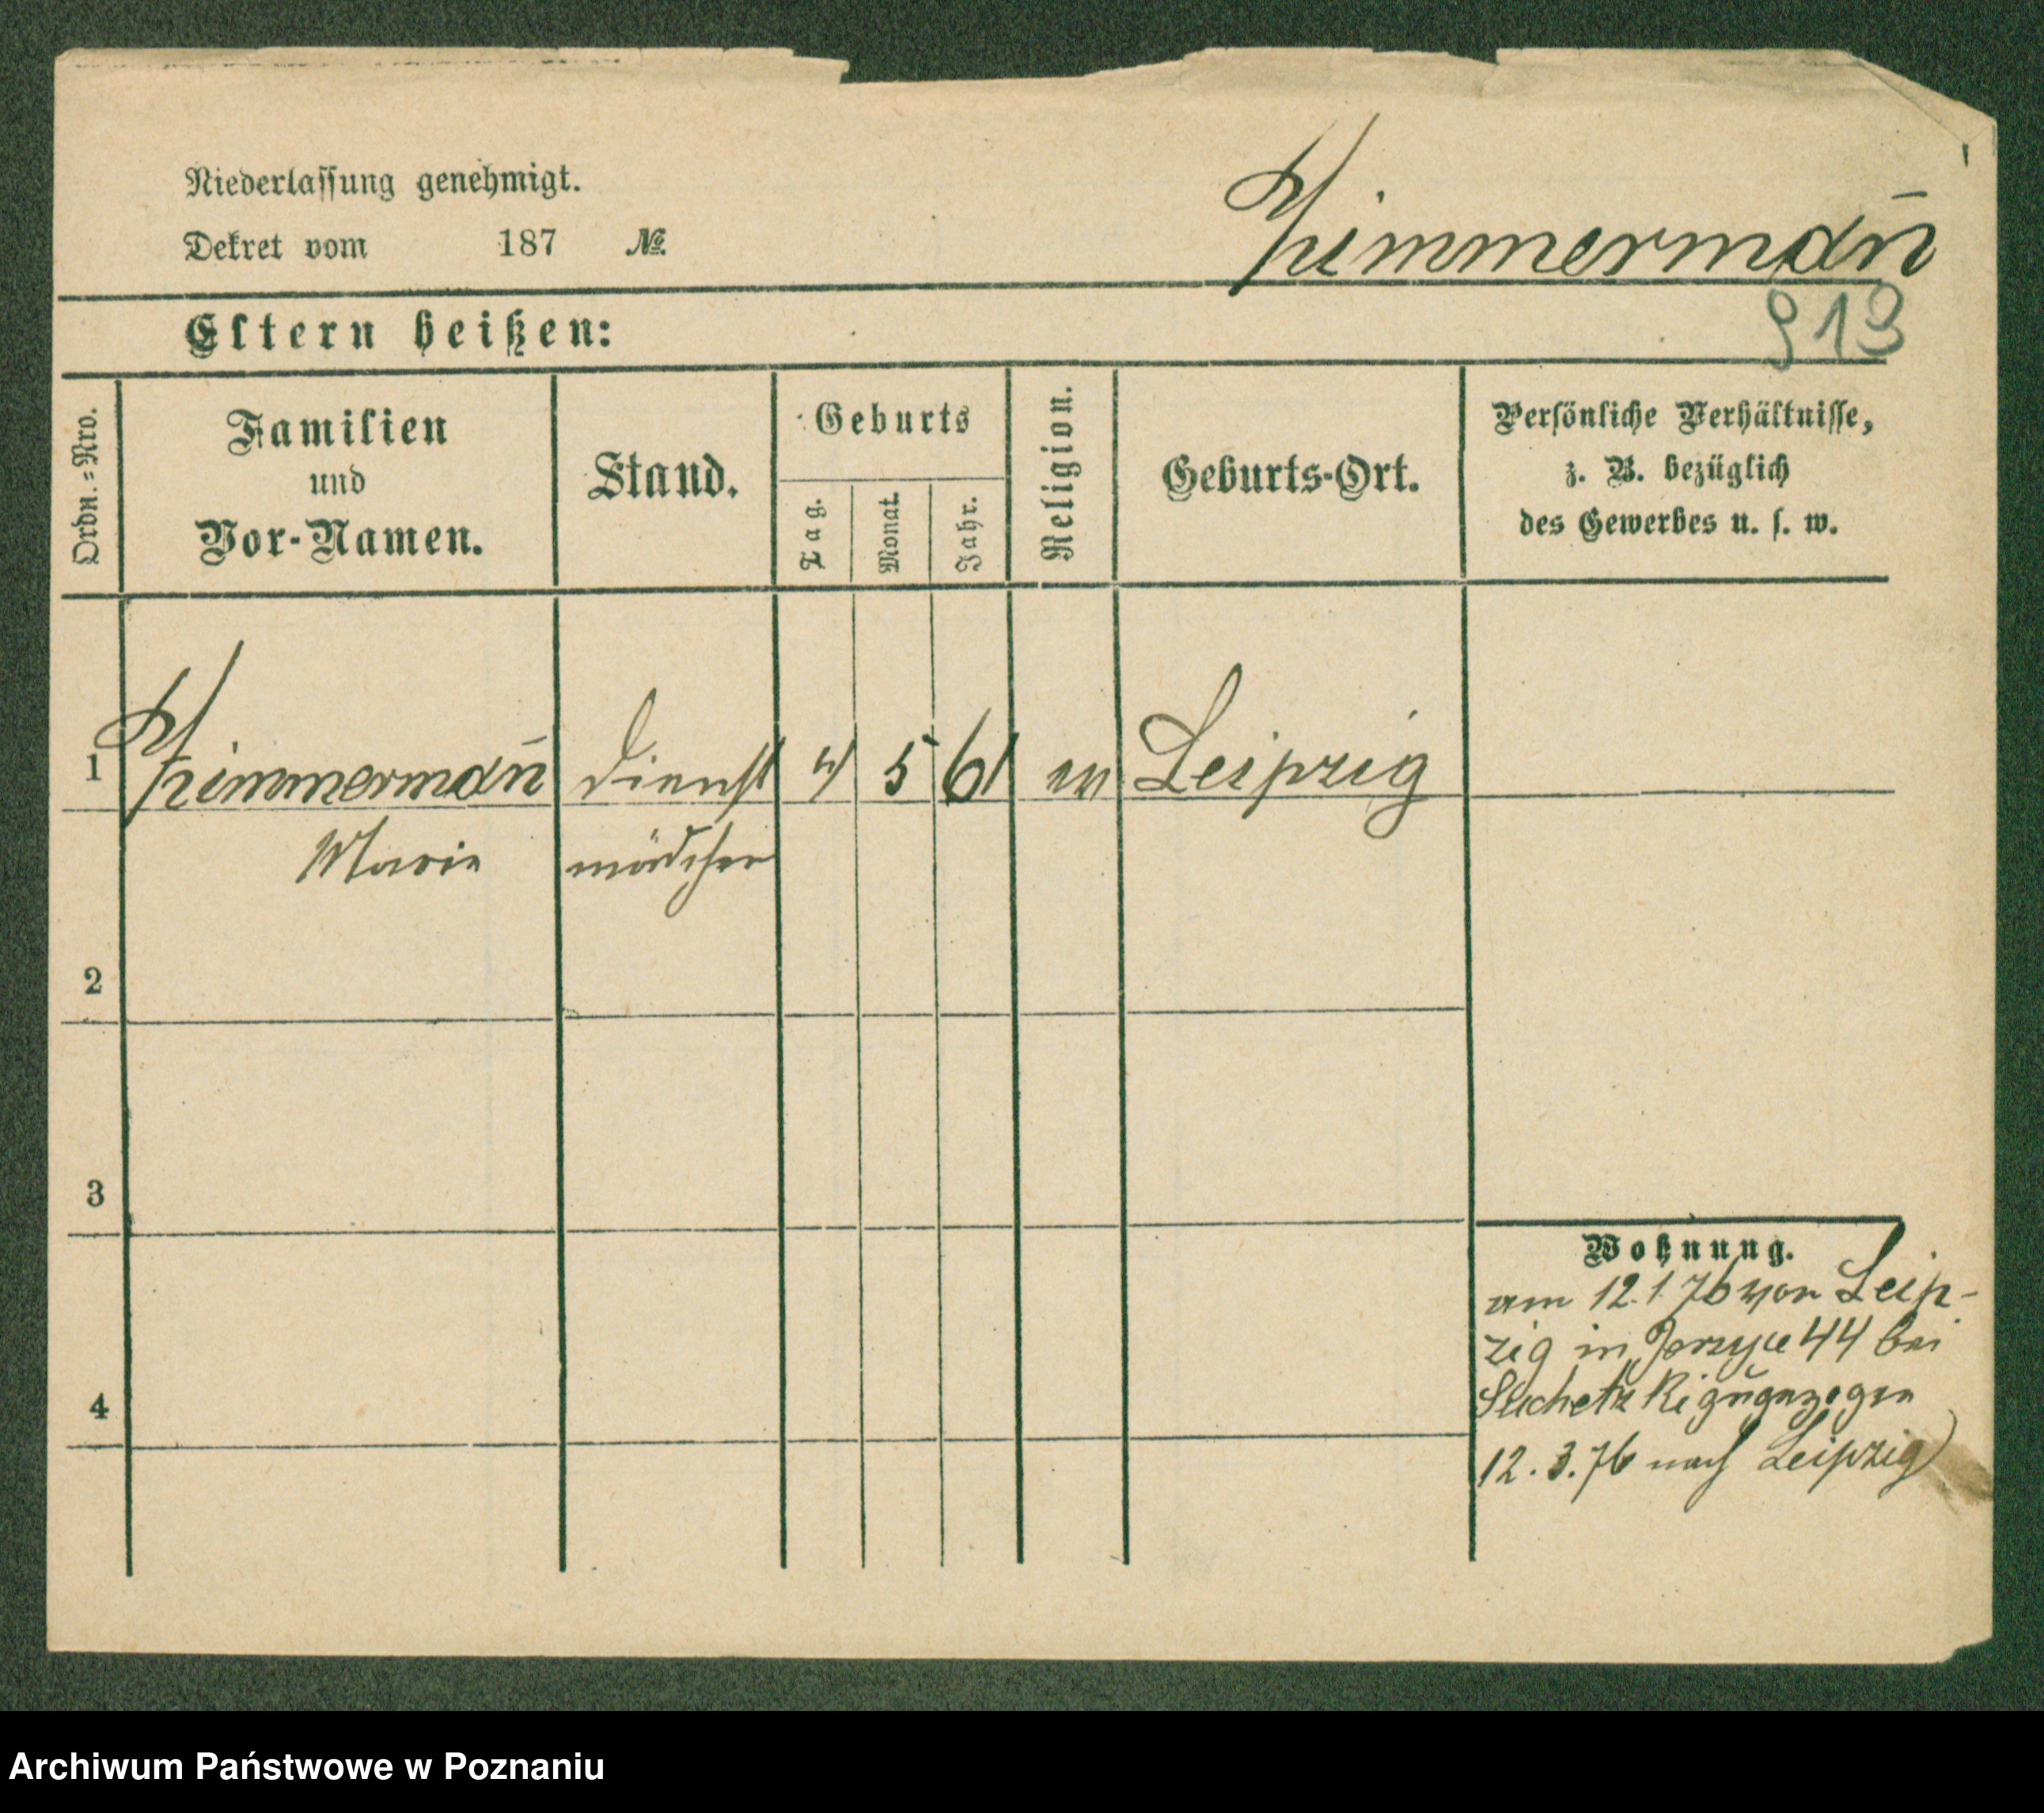 Niederlassung genehmigt.
Dekret vom 187 №
Zimmerman̄
913
Eltern heißen:
Ordn.=Nro.
Familien
und
Vor-Namen.
Stand.
Geburts
Tag.
Monat.
Jahr.
Religion.
Geburts-Ort.
Persönliche Verhältnisse,
z. B. bezüglich
des Gewerbes u. s. w.
1 Zimmerman̄ Dienst 4 5 61 ev Leipzig
Marie mädchen
2
3
4
Wohnung.
am 12.1.76 von Leip-
zig in Jerzyce 44 bei
Suchetzki zugezogen
12.3.76 nach Leipzig
Archiwum Państwowe w Poznaniu